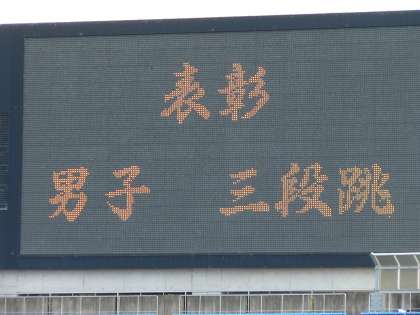 表彰
男子 三段跳